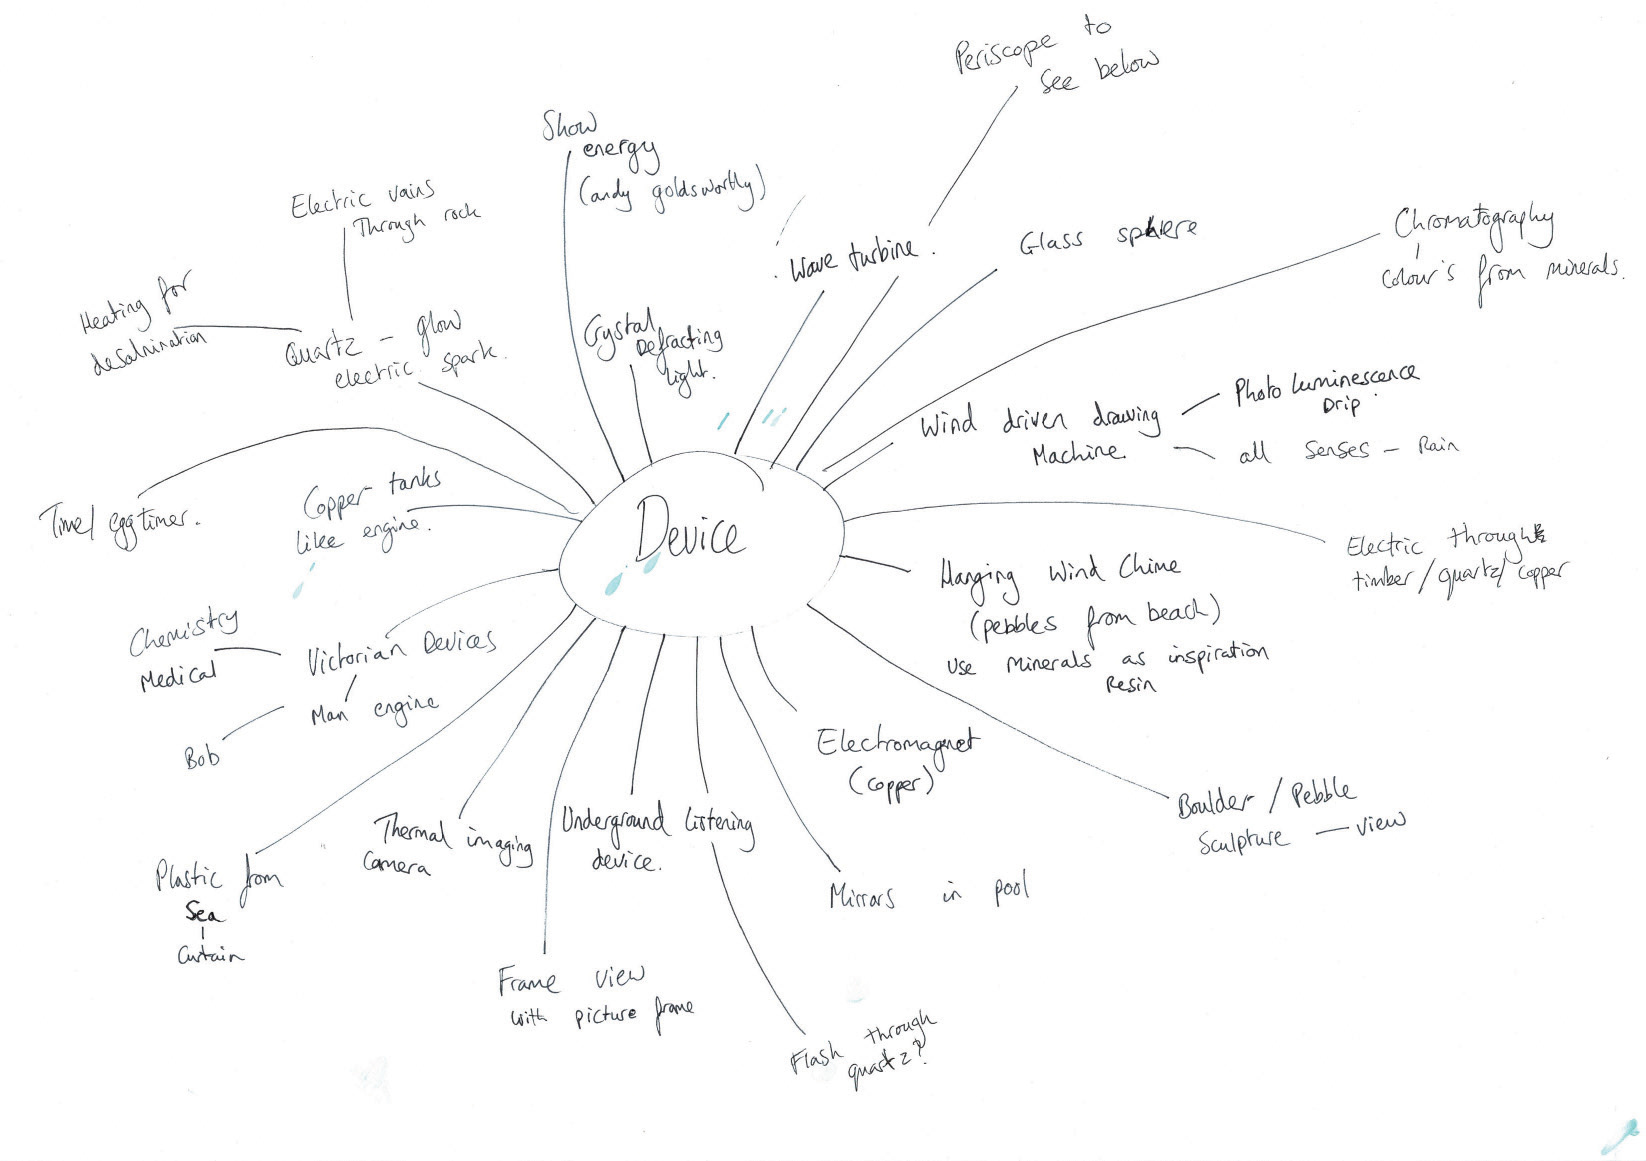 Periscope to
See below
Show
energy
(andy goldsworthy)
Electric vains
Through rock
Wave turbine.
Glass sphere
Chromatography
Colour's from minerals.
Heating for
desalnination
Quartz - glow
electric spark.
Crystal
Defracting
light.
Wind driven drawing
Machine.
Photo luminescence
Drip
all senses - Rain
Time/ Egg timer.
Copper tanks
like engine.
Device
Electric through
timber/quartz/copper
Hanging Wind Chime
(pebbles from beach)
Use minerals as inspiration
Resin
Chemistry
Medical
Victorian Devices
Man engine
Bob
Electromagnet
(copper)
Boulder / Pebble
Sculpture — view
Plastic from
Sea
Curtain
Thermal imaging
Camera
Underground Listening
device.
Mirrors in pool
Frame view
with picture frame
Flash through
quartz?